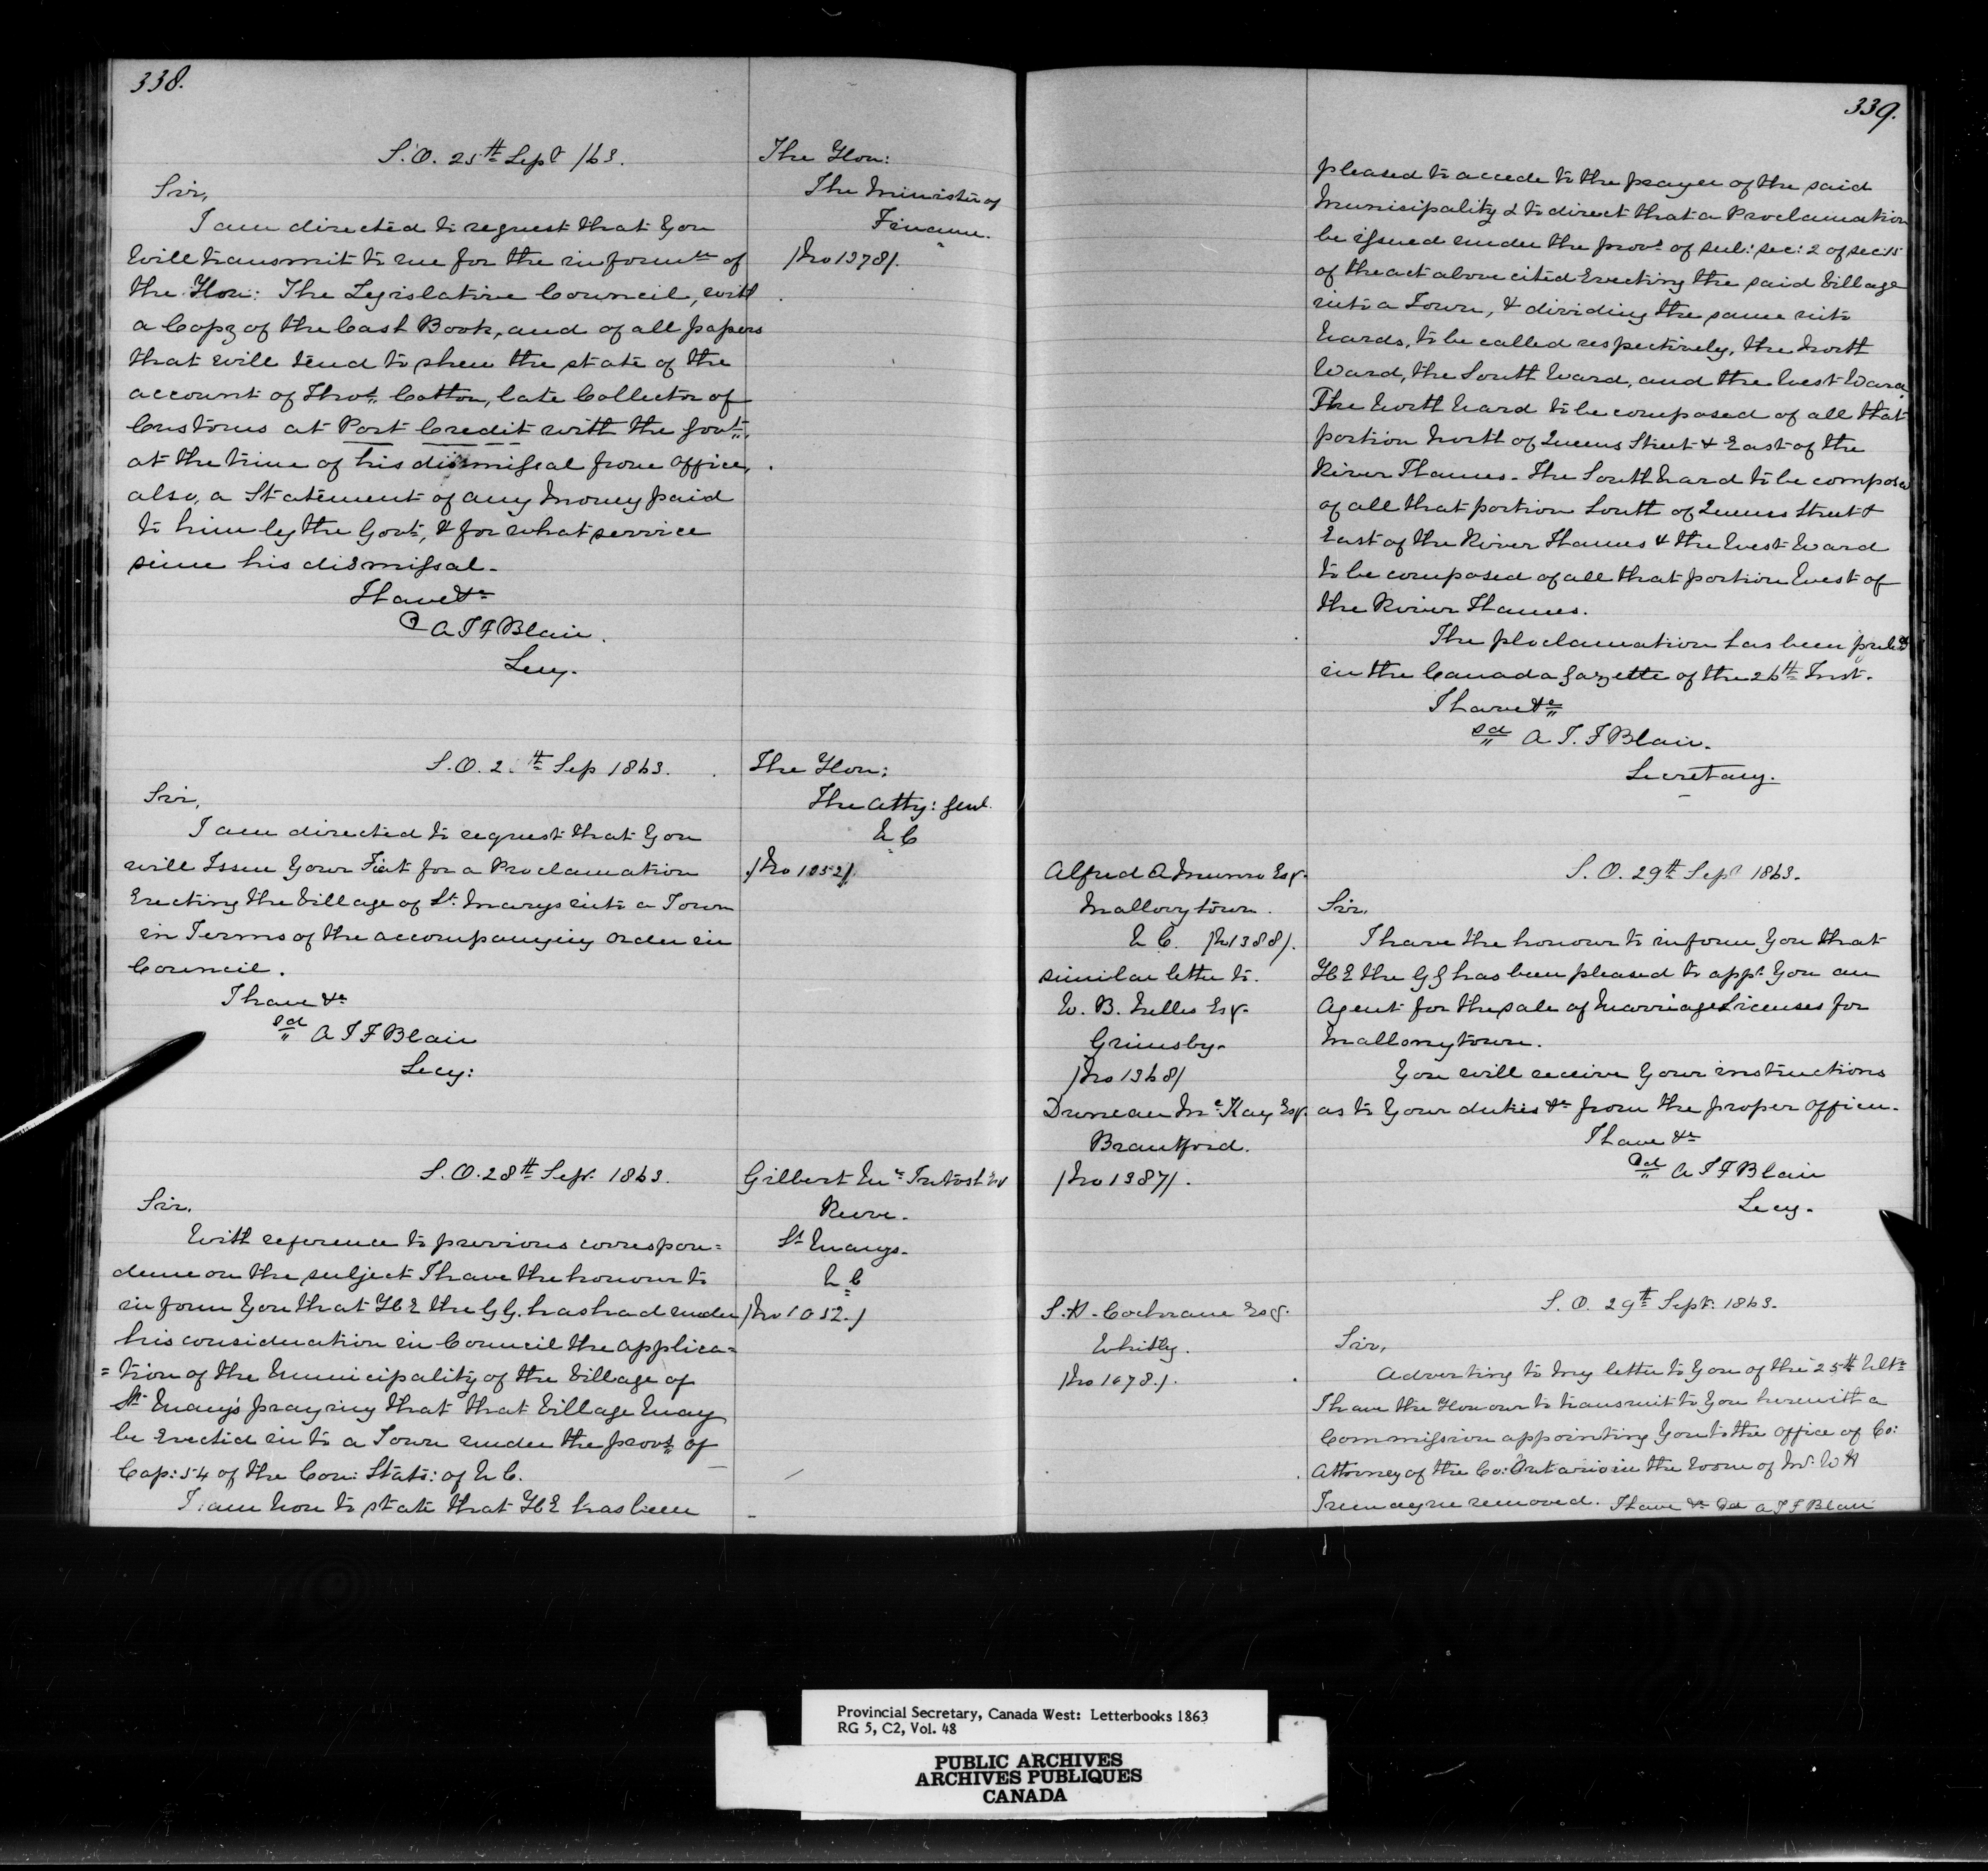 338.
S.O. 25th Sept /63.
The Hon:
The Minister of
Finance.
/No 1378/.
Sir,
I am directed to request that you
will transmit to me for the informtn of
the Hon: The Legislative Council, with
a Copy of the Cash Book, and of all papers
that will tend to shew the state of the
account of Thos. Cotton, late Collector of
Customs at Port Credit with the Govt.
at the time of his dismissal from office,
also, a Statement of any money paid
to him by the Govt, & for what service
since his dismissal.
I have &c
A J F Blair.
Secy.
S.O. 2 th Sep 1863.
The Hon:
The Atty: Genl.
U C
/No 1052/.
Sir,
I am directed to request that you
will Issue your Fiat for a Proclamation
Erecting the Village of St. Marys into a Town
in Terms of the accompanying Order in
Council.
I have &c
sd A J F Blair
Secy:
S.O. 28th Sepr. 1863.
Gilbert Mc Intosh Esq
Reeve.
St Marys.
U C
/No 1052./
Sir,
With reference to previous correspon=
dence on the subject I have the honour to
inform you that H E the G G. has had under
his consideration in Council the applica=
=tion of the Municipality of the Village of
St. Mary's praying that that Village may
be Erected into a Town under the provs. of
Cap: 54 of the Con: Stats: of U C.
I am now to state that H E has been
339.
pleased to accede to the prayer of the said
Municipality & to direct that a Proclamation
be issued under the provs of sub: sec: 2 of sec 15
of the act above cited Erecting the said Village
into a Town, & dividing the same into
Wards, to be called respectively, the North
Ward, the South Ward, and the West Ward
The North Ward to be composed of all that
portion North of Queens Street & East of the
River Thames. The South Ward to be composed
of all that portion South of Queens Street &
East of the River Thames & the West Ward
to be composed of all that portion West of
the River Thames.
The Proclamation has been publd
in the Canada Gazette of the 26th Inst.
I have &c
sd A J. F Blair.
Secretary.
Alfred A Munro Esqr.
Mallorytown.
U C. /No 1388/.
similar letter to.
W. B. Nelles Esqr.
Grimsby.
/No 1368/
Duncan Mc Kay Esqr.
Brantford.
/No 1387/.
S. O. 29th Sept 1863.
Sir,
I have the honour to inform you that
H E the G G has been pleased to appt you an
Agent for the sale of Marriage Licenses for
Mallorytown.
You will receive your instructions
as to your duties &c from the proper officer.
I have &c
sd A J F Blair
Secy.
S. H. Cochrane Esqr.
Whitby.
/No 1678./.
S. O. 29th Sept. 1863.
Sir,
Adverting to my letter to you of the 25th Ulto
I have the Honour to transmit to you herewith a
Commission appointing you to the office of Co:
Attorney of the Co: Ontario in the room of Mr. W H
Tremayne removed. I have &c sd A J F Blair
Provincial Secretary, Canada West: Letterbooks 1863
RG 5, C2, Vol. 48
PUBLIC ARCHIVES
ARCHIVES PUBLIQUES
CANADA